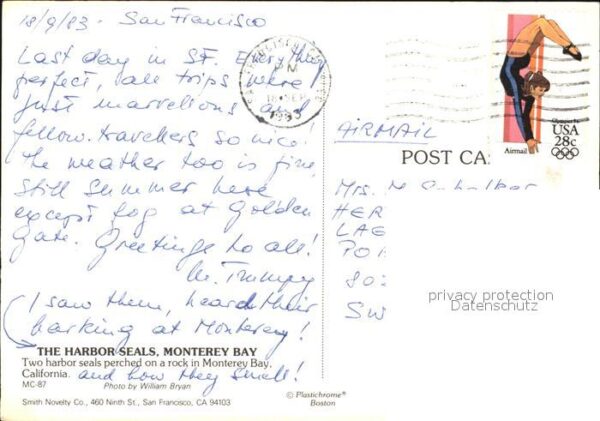 18/9/83 - San Francisco
Last day in SF. Everything
perfect, all trips were
just marvellous and
fellow-travellers so nice!
The weather too is fine,
still summer here
except fog at Golden
Gate. Greetings to all!
I saw them, heard their
barking at Monterey!
THE HARBOR SEALS, MONTEREY BAY
Two harbor seals perched on a rock in Monterey Bay,
California.
and how they smell!
MC-87
Photo by William Bryan
Smith Novelty Co., 460 Ninth St., San Francisco, CA 94103
© Plastichrome®
Boston
1983
Olympics
USA
28c
Airmail
AIRMAIL
POST CA
Mrs. M
HER
LAE
PO
80
SW
privacy protection
Datenschutz